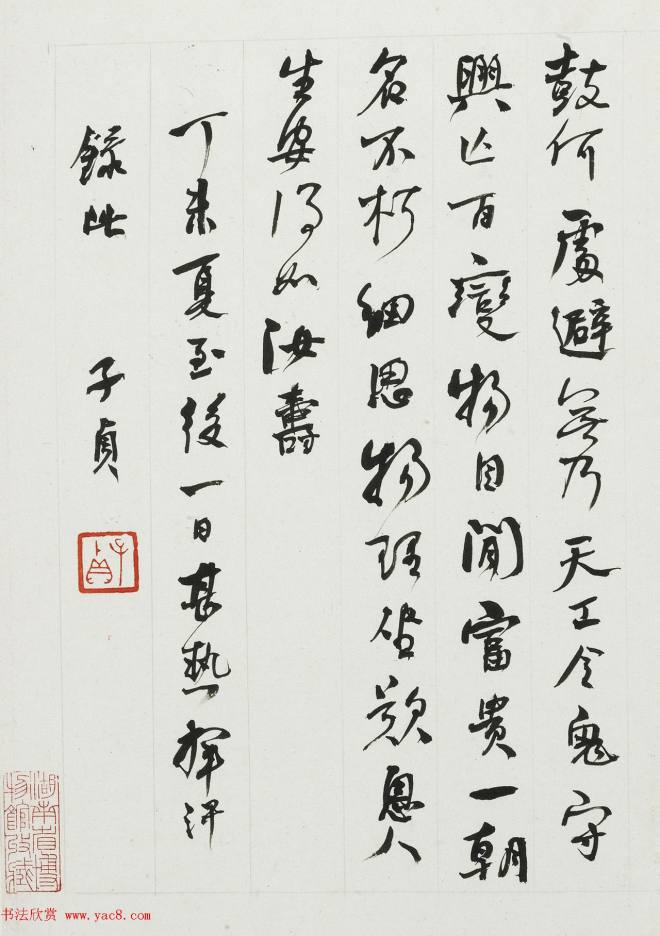 鼓何處避無乃天工令鬼守
興亡百變物自閒富貴一朝
名不朽細思物理坐歎息人
生安得如汝壽
丁未夏至後一日甚熱揮汗
錄此 子貞
子貞
湖南省博物館收藏
书法欣赏 www.yac8.com